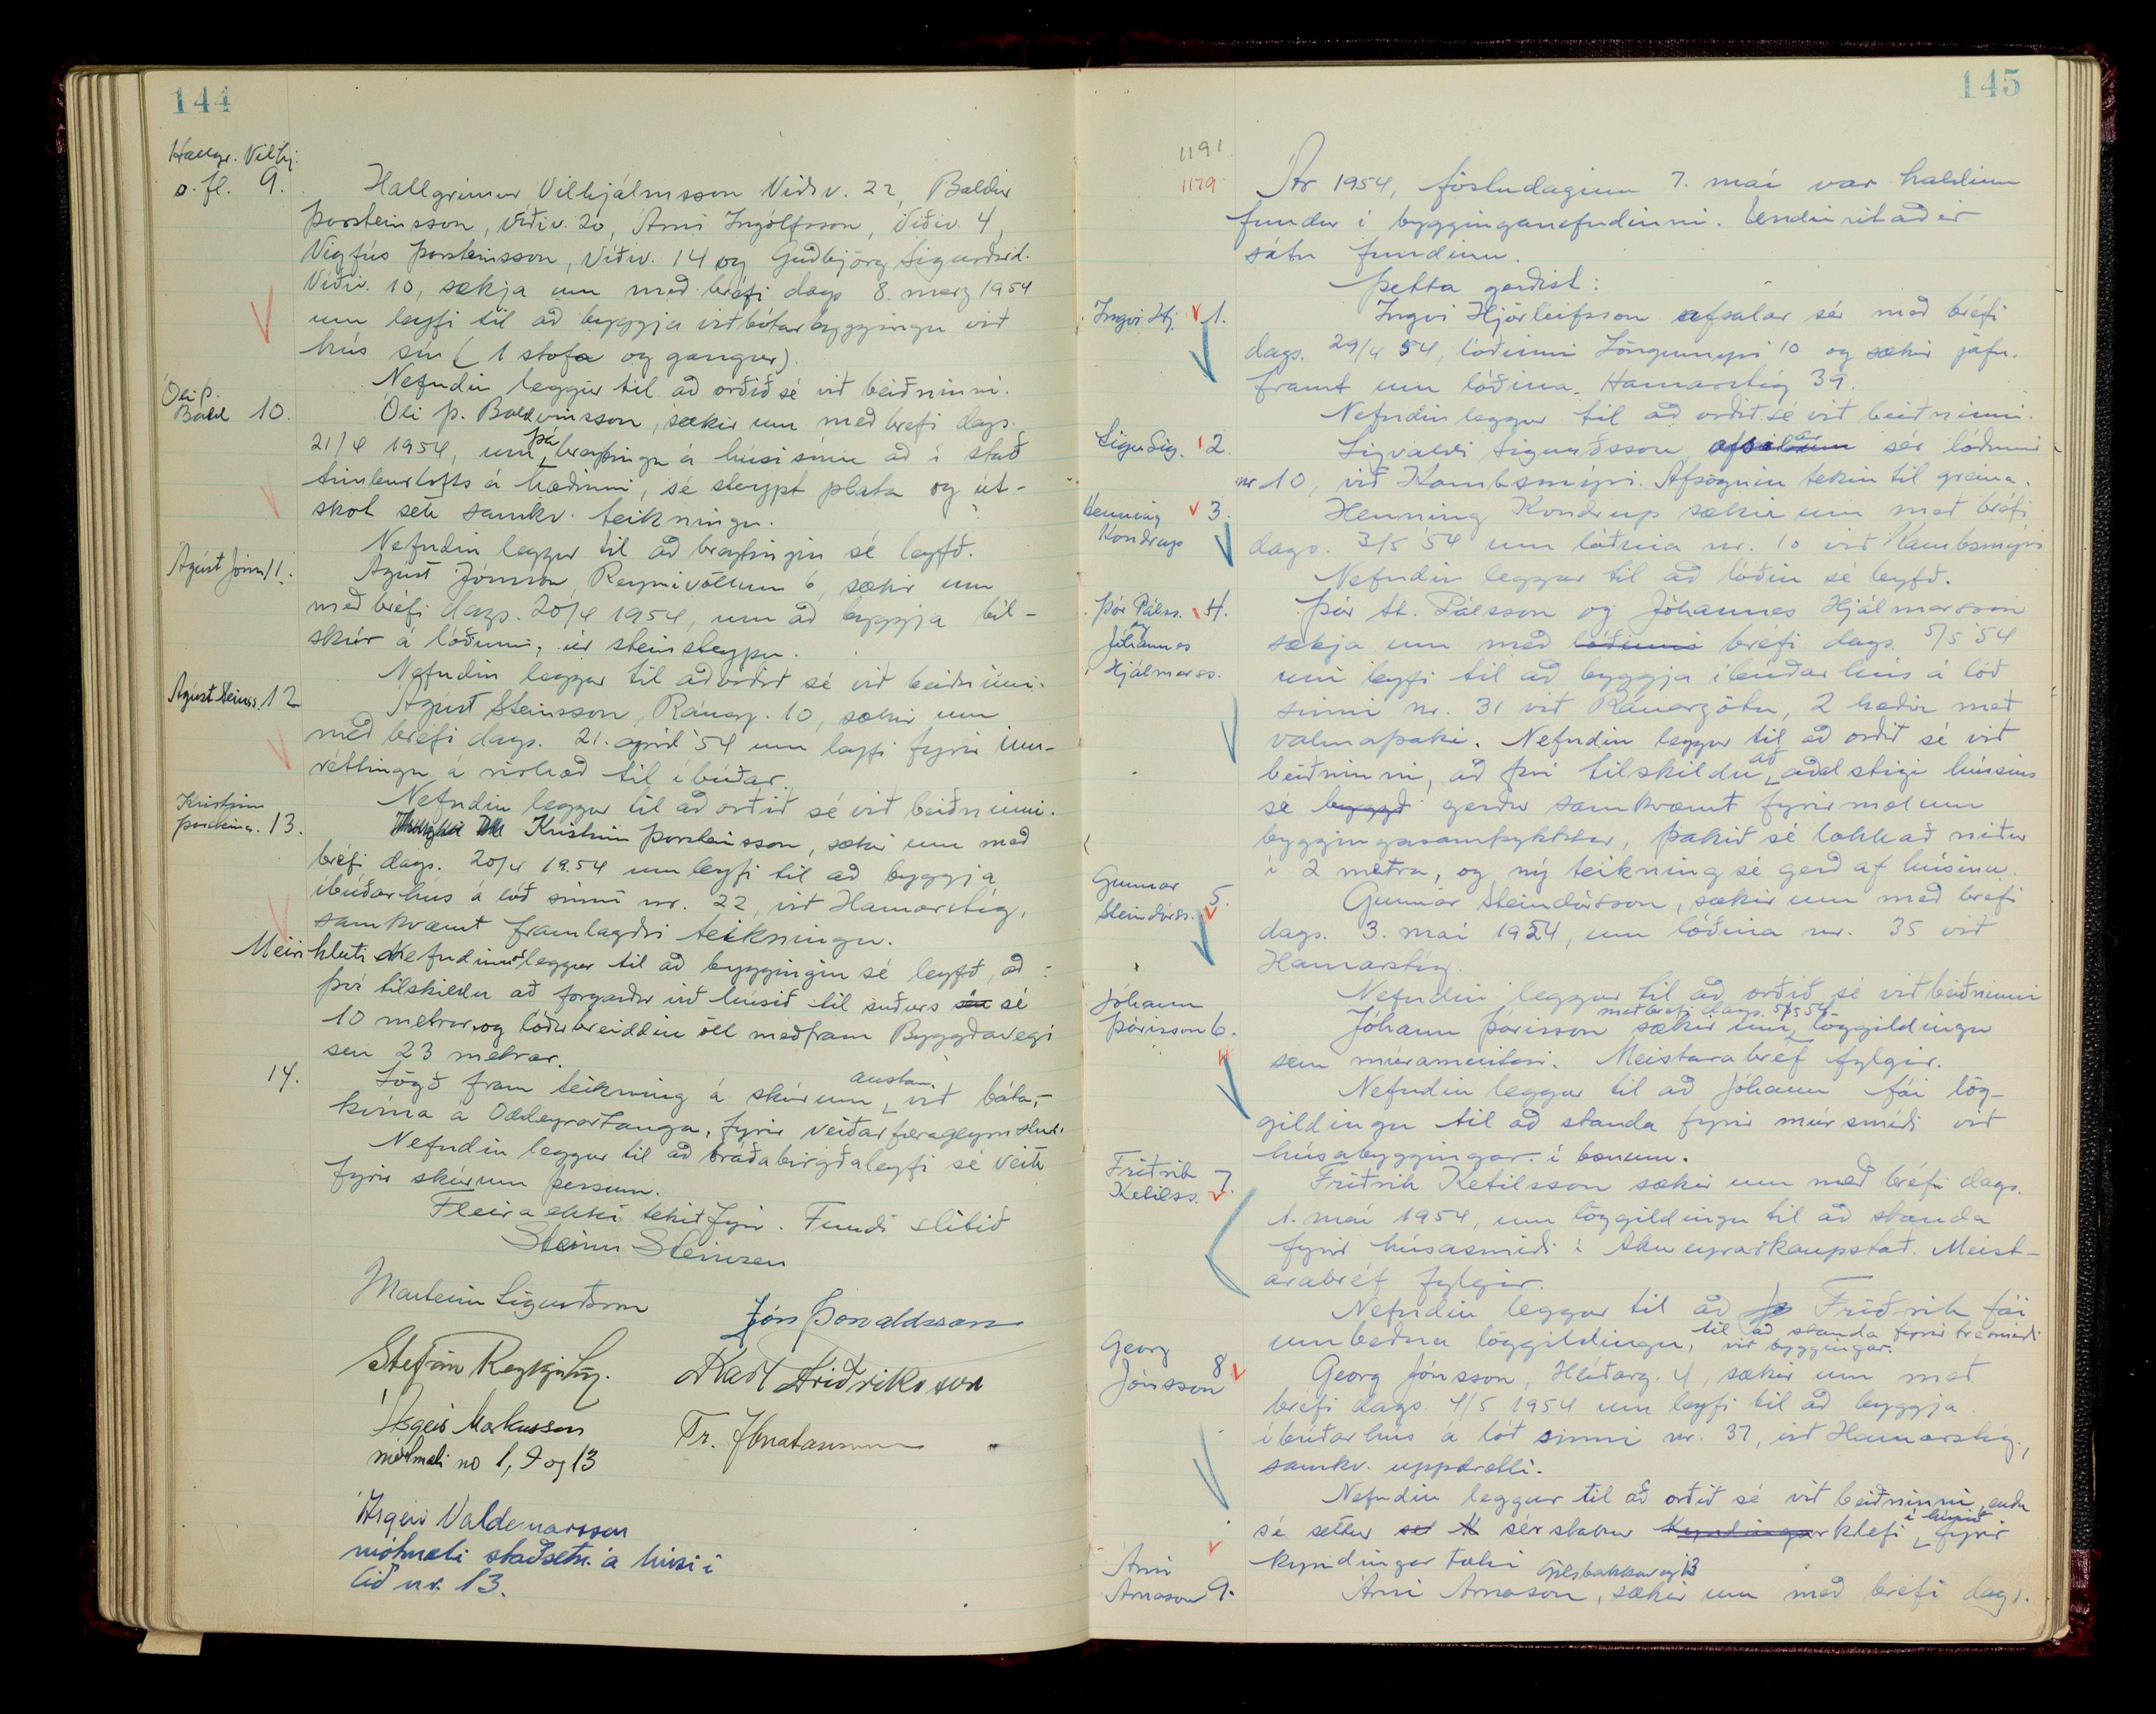 144
Hallgr. Vilhj.
o. fl. 9. Hallgrímur Vilhjálmsson Víðiv. 22, Baldur
Þorsteinsson, Víðiv. 20, Árni Ingólfsson, Víðiv. 4,
Vigfús Þorsteinsson, Víðiv. 14 og Guðbjörg Sigurðard.
Víðiv. 10, sækja um með bréfi dags 8. marz 1954
um leyfi til að byggja viðbótarbyggingu við
hús sín (1 stofa og gangur).
Nefndin leggur til að orðið sé við beiðninni.
Óli Þ.
Bald 10. Óli Þ. Baldvinsson, sækir um með bréfi dags.
21/4 1954, um þá breytingu á húsi sínu að í stað
timburlofts á hæðinni, sé steypt plata og út-
skot sett samkv. teikningu.
Nefndin leggur til að breytingin sé leyfð.
Ágúst Jónss 11. Ágúst Jónsson, Reynivöllum 6, sækir um
með bréfi dags. 20/4 1954, um að byggja bíl-
skúr á lóðinni, úr steinsteypu.
Nefndin leggur til að orðið sé við beiðninni.
Ágúst Steinss. 12 Ágúst Steinsson, Ránarg. 10, sækir um
með bréfi dags. 21. apríl '54 um leyfi fyrir inn-
réttingu á rishæð til íbúðar.
Nefndin leggur til að orðið sé við beiðninni.
Kristinn
Þorsteinss. 13. Kristinn Þorsteinsson, sækir um með
bréfi dags. 20/4 1954 um leyfi til að byggja
íbúðarhús á lóð sinni nr. 22, við Hamarstíg,
samkvæmt framlagðri teikningu.
Meiri hluti nefndinnar leggur til að byggingin sé leyfð, að
því tilskildu að forgarður við húsið til suðurs sé
10 metrar, og lóðarbreiddin öll meðfram Byggðavegi
sem 23 metrar.
14. Lögð fram teikning á skúrum austan við báta-
kvína á Oddeyrartanga, fyrir veiðarfærageymslur.
Nefndin leggur til að bráðabirgðaleyfi sé veitt
fyrir skúrum þessum.
Fleira ekki tekið fyrir. Fundi slitið
Steinn Steinsen
Marteinn Sigurðsson Jón Þorvaldsson
Stefán Reykjalín. Karl Friðriksson
Ásgeir Markusson Tr. Jónatansson
mótmæli no 1, 9 og 13
Ásgeir Valdemarsson
mótmæli staðsetn. á húsi í
lið nr. 13.
145
1191
1179 Ár 1954, föstudaginn 7. maí var haldinn
fundur í bygginganefndinni. Undirritaðir
sátu fundinn.
Þetta gerðist:
Ingvi Hj. 1. Ingvi Hjörleifsson afsalar sér með bréfi
dags. 29/4 54, lóðinni Löngumýri 10 og sækir jafn-
framt um lóðina Hamarstíg 39.
Nefndin leggur til að orðið sé við beiðninni.
Sigv. Sig. 2. Sigvaldi Sigurðsson, afsalar sér lóðinni
nr 10, við Kambsmýri. Afsögnin tekin til greina.
Henning
Kondrup 3. Henning Kondrup sækir um með bréfi
dags. 3/5 '54 um lóðina nr. 10 við Kambsmýri
Nefndin leggur til að lóðin sé leyfð.
Þór Pálss. 4. Þór St. Pálsson og Jóhannes Hjálmarsson
og
Jóhannes
Hjálmarss.
sækja um með lóðinni bréfi dags. 5/5 '54
um leyfi til að byggja íbúðarhús á lóð
sinni nr. 31 við Ránargötu, 2 hæðir með
valmaþaki. Nefndin leggur til að orðið sé við
beiðninni, að því tilskildu að aðalstigi hússins
sé byggð gerður samkvæmt fyrirmælum
byggingasamþykktar, þakið sé lækkað niður
í 2 metra, og ný teikning sé gerð af húsinu.
Gunnar
Steindórss. 5. Gunnar Steindórsson, sækir um með bréfi
dags. 3. maí 1954, um lóðina nr. 35 við
Hamarstíg.
Nefndin leggur til að orðið sé við beiðninni
Jóhann
Þórisson 6. Jóhann Þórisson sækir um með bréfi dags. 5/5 54 löggildingu
sem múrameistari. Meistarabréf fylgir.
Nefndin leggur til að Jóhann fái lög-
gildingu til að standa fyrir múrsmíði við
húsabyggingar í bænum.
Friðrik
Ketilss. 7. Friðrik Ketilsson sækir um með bréfi dags.
1. maí 1954, um löggildingu til að standa
fyrir húsasmíði í Akureyrarkaupstað. Meist-
arabréf fylgir.
Nefndin leggur til að Friðrik fái
umbeðna löggildingu, til að standa fyrir trésmíði
við byggingar.
Georg
Jónsson 8 Georg Jónsson, Hlíðarg. 4, sækir um með
bréfi dags. 4/5 1954 um leyfi til að byggja
íbúðarhús á lóð sinni nr. 37, við Hamarstíg,
samkv. uppdrætti.
Nefndin leggur til að orðið sé við beiðninni, enda
sé settur sérstakur kyndingar klefi í húsið fyrir
kyndingar tæki
Árni
Árnason 9. Árni Árnason, Gilsbakkaveg 13 sækir um með bréfi dags.